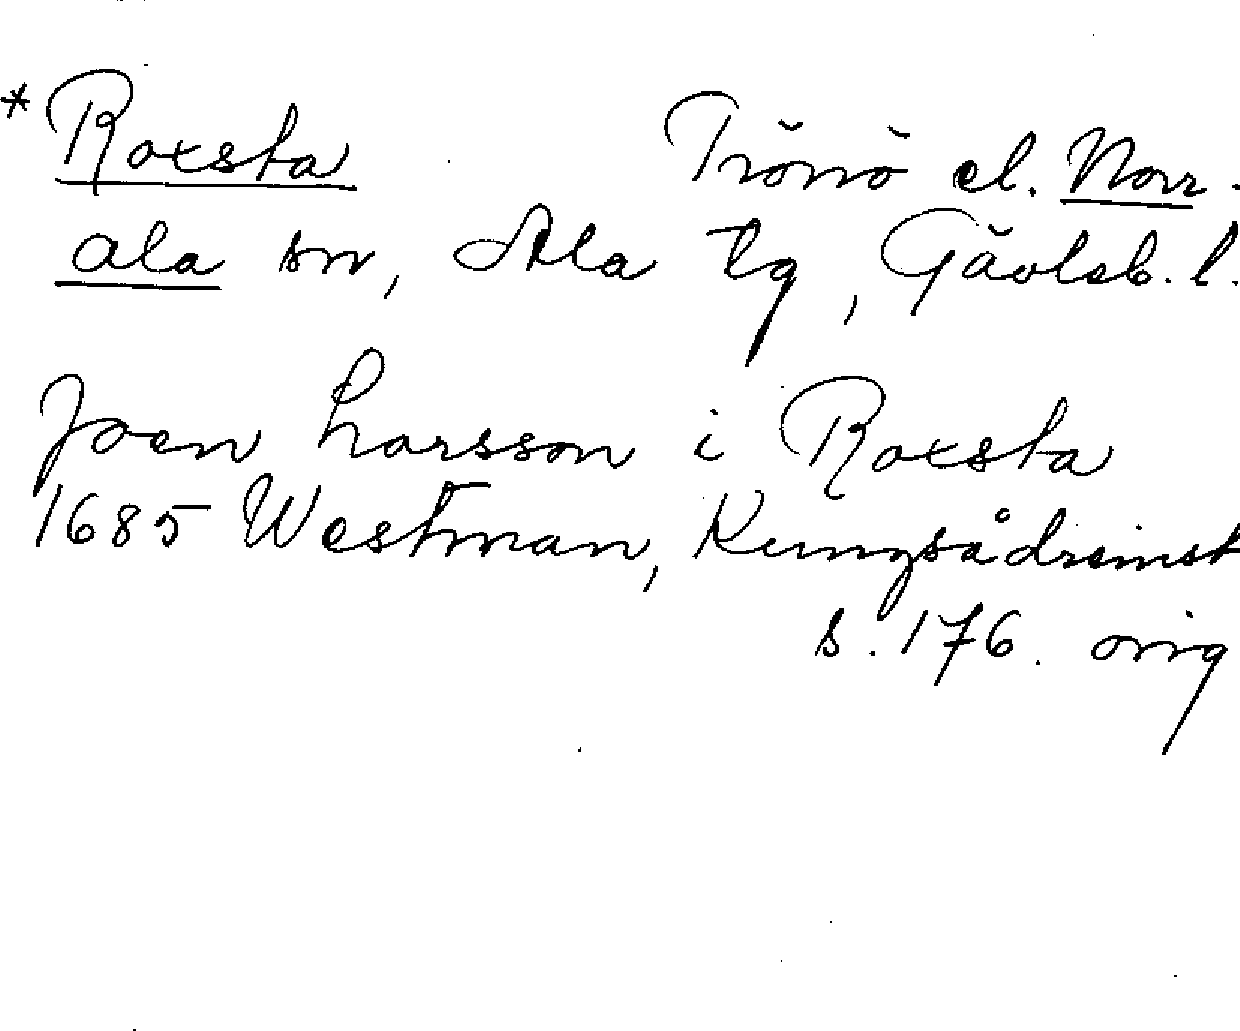 * Roxsta Trönö el. Norr-
ala sn, Ala tg, Gävleb. l.
Joen Larsson i Roxsta
1685 Westman, Kungsådreinst
s. 176. orig